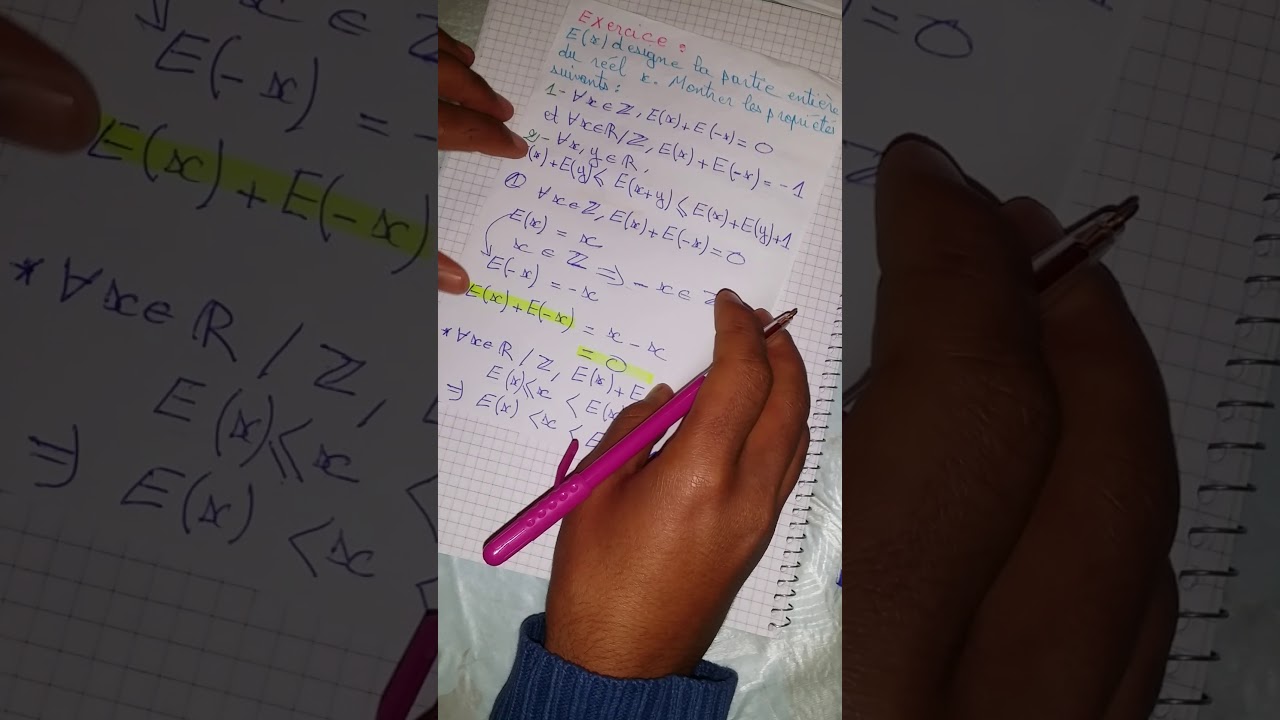 Exercice :
E(x) designe la partie entière
du réel x. Montrer les propriétés
suivants :
1- ∀x∈ℤ, E(x)+E(-x)=0
et ∀x∈ℝ/ℤ, E(x)+E(-x)=-1
2- ∀x,y∈ℝ,
(x)+E(y)⩽E(x+y)⩽E(x)+E(y)+1
① ∀x∈ℤ, E(x)+E(-x)=0
E(x) = x
x ∈ ℤ ⇒ -x ∈
E(-x) = -x
E(x)+E(-x) = x - x
= 0
* ∀x∈ℝ/ℤ, E(x)+E
E(x)⩽x < E(x)
⇒ E(x) <x < E